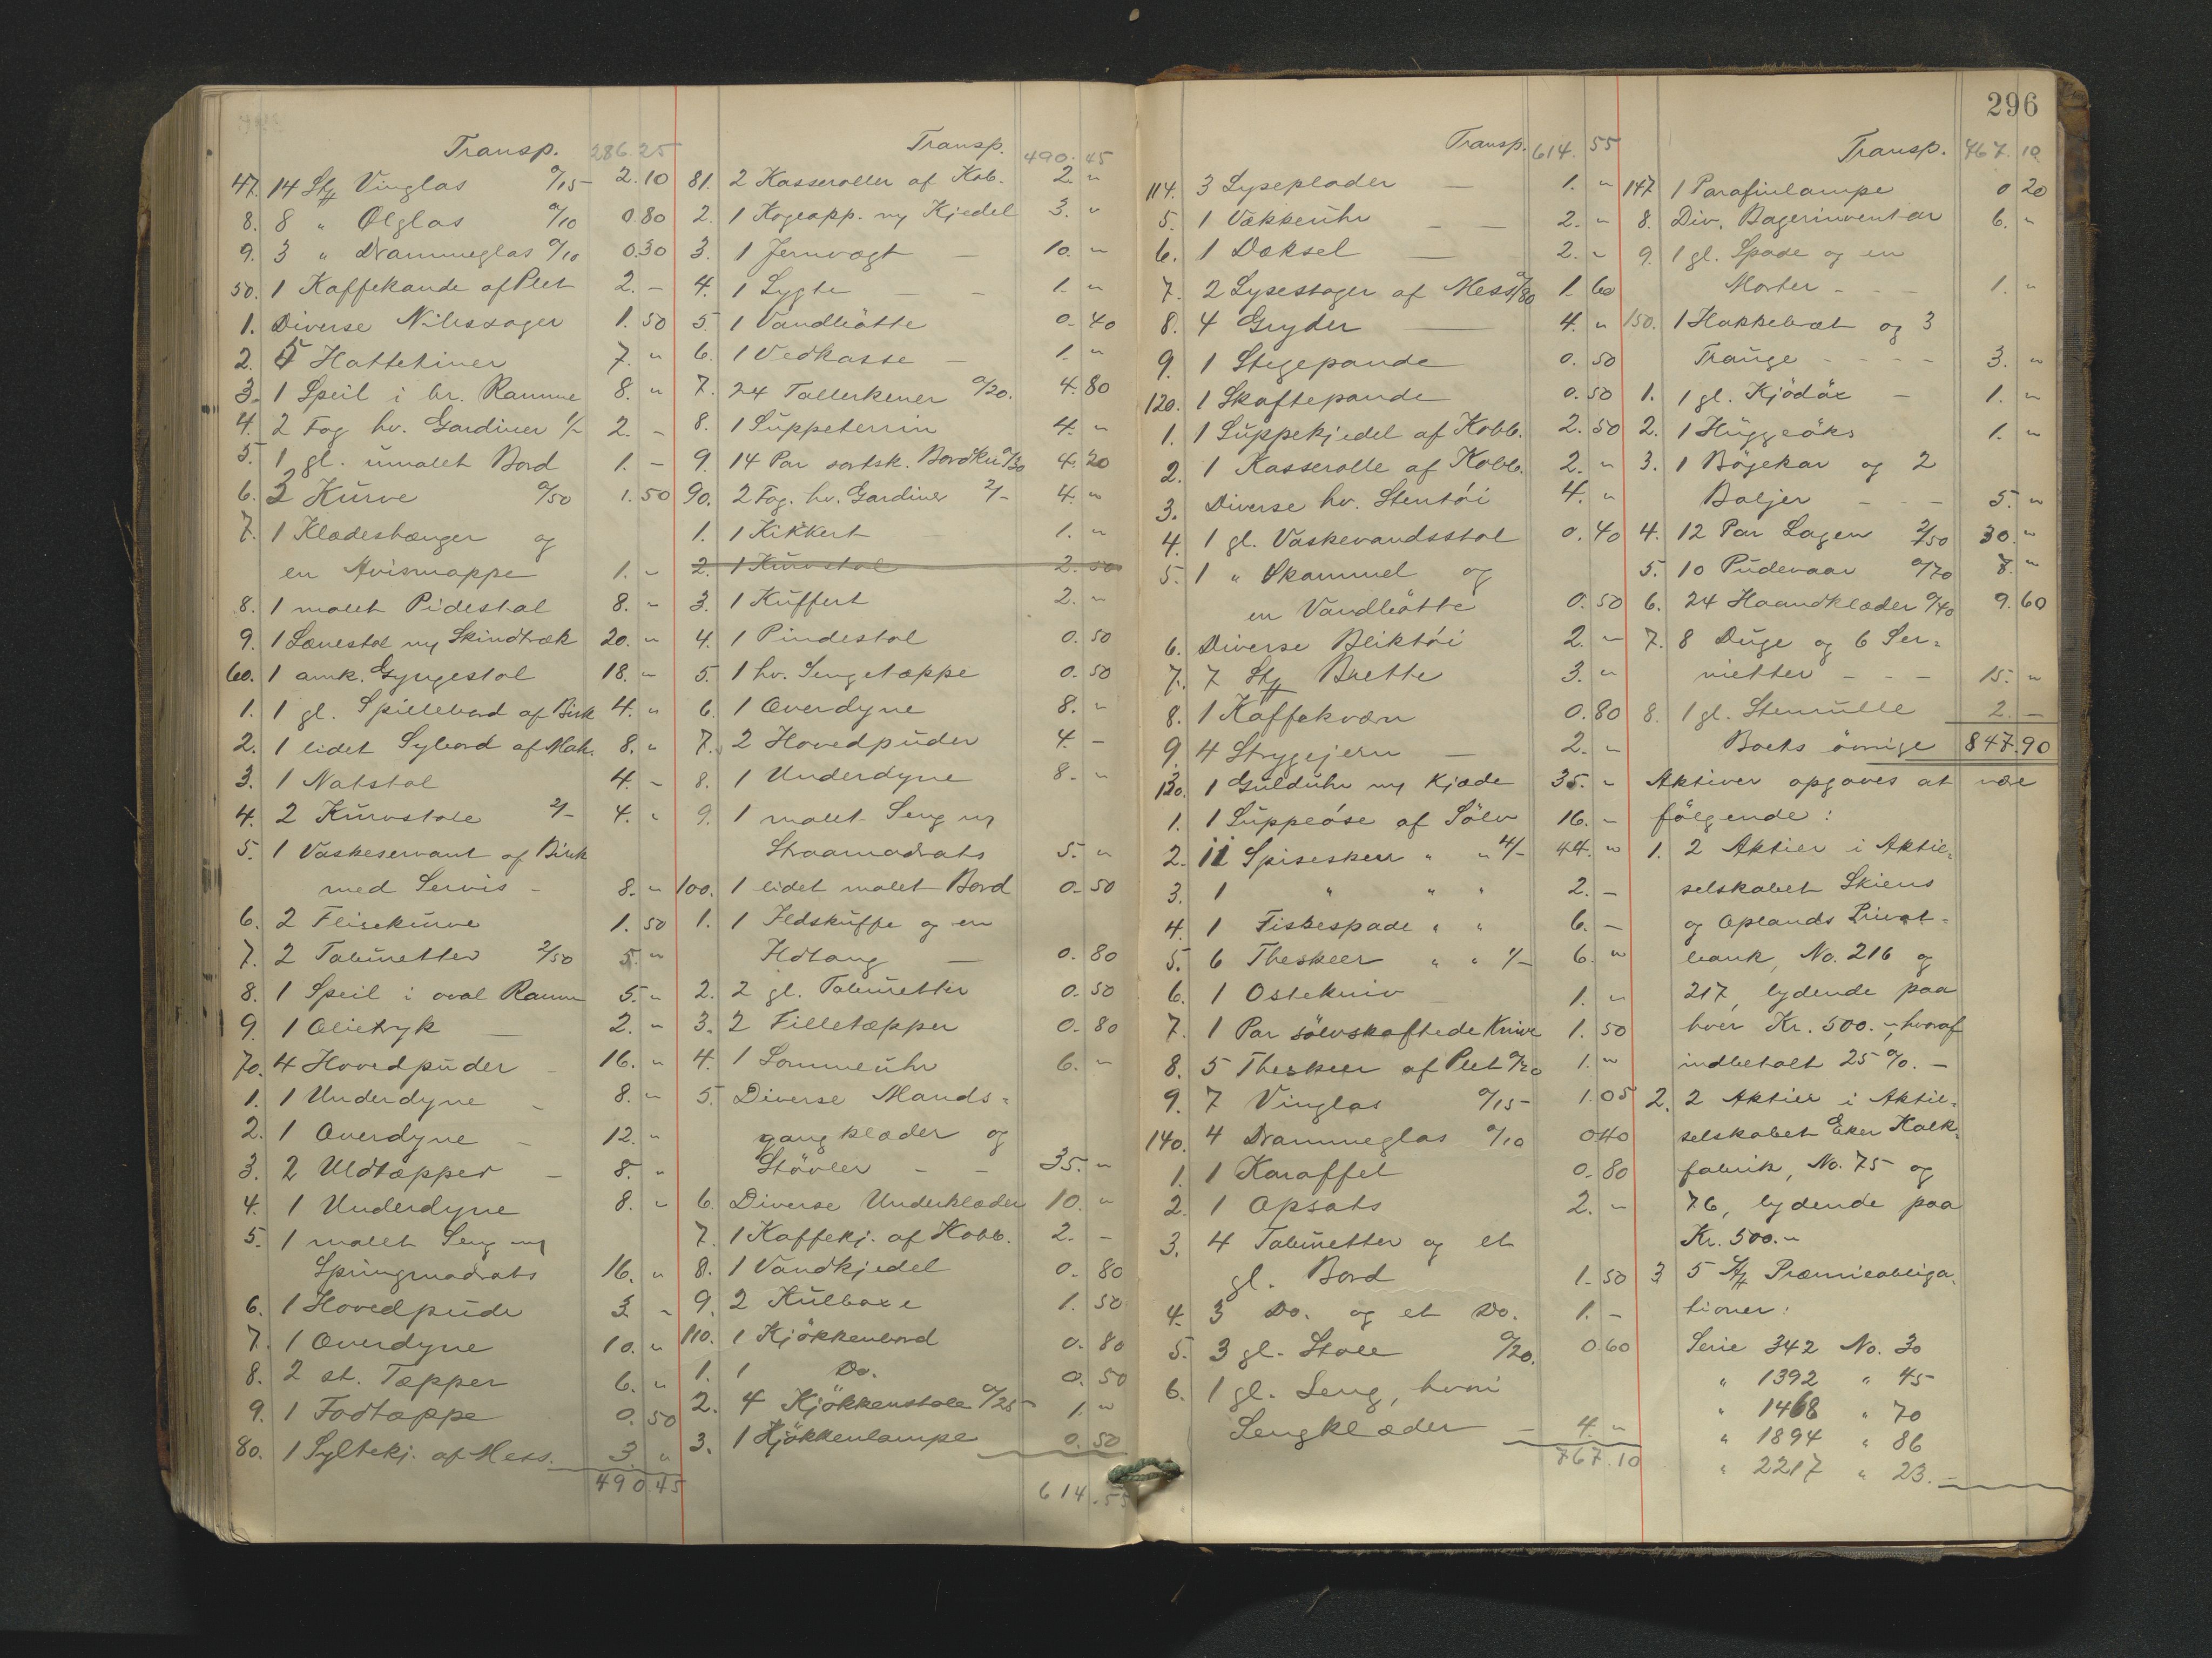 296
Transp. 286.25
47. 14 Stk Vinglas 0/15 2.10
8. 8 " Ölglas 0/10 0.80
9. 3 " Drammeglas 0/10 0.30
50. 1 Kaffekande af Plet 2. -
1. Diverse Nibssager 1.50
2. 5 Hattekiner 7. "
3. 1 Speil i br. Ramme 8. "
4. 2 Fag hv. Gardiner 1/- 2. -
5. 1 gl. umalet Bord 1. -
6. 3 Kurve 0/50 1.50
7. 1 Klædeshænger og
en Avismappe 1. -
8. 1 malet Pidestal 8. -
9. 1 Lænestol m/ Skindtræk 20. "
60. 1 amk. Gyngestol 18. "
1. 1 gl. Spillebord af Birk 4. "
2. 1 lidet Sybord af Mah. 8. "
3. 1 Natstol 4. -
4. 2 Kurvstole 2/- 4. "
5. 1 Vaskeservant af Birk
med Servis - 8. "
6. 2 Flisekurve 1.50
7. 2 Tabüretter 2/50 5. "
8. 1 Speil i oval Ramme 5. "
9. 1 Olietryk 2. "
70. 4 Hovedpüder 16. "
1. 1 Underdyne 8. "
2. 1 Overdyne 12. "
3. 2 Uldtæpper 8. "
4. 1 Underdyne 8. -
5. 1 malet Seng m/
Springmadrats 16. "
6. 1 Hovedpüde 3 -
7. 1 Overdyne 10. "
8. 2 st. Tæpper 6. "
9. 1 Fodtæppe 0.50
80. 1 Syltekj. af Mess. 3. "
490.45
Transp. 490.45
81. 2 Kasseroller af Kob. 2. "
2. 1 Kogeapp. m/ Kjedel 3. "
3. 1 Jernvægt - 10. "
4. 1 Lygte - 1. "
5. 1 Vandbötte 0.40
6. 1 Vedkasse - 1. "
7. 24 Tallerkener 0/20. 4.80
8. 1 Süppeterrin 4. "
9. 14 Par sortsk. Bordkn 0/30 4.20
90. 2 Fag. hv. Gardiner 2/- 4. "
1. 1 Kikkert 1. "
2. 1 Kurvstol 2.50
3. 1 Küffert 2. "
4. 1 Pindestol 0.50
5. 1 hv. Sengetæppe 0.50
6. 1 Overdyne 8. "
7. 2 Hovedpüder 4. -
8. 1 Underdyne 8. "
9. 1 malet Seng m/
Straamadrats 5. "
100. 1 lidet malet Bord 0.50
1. 1 Ildskuffe og en
Ildtang - 0.80
2. 2 gl. Tabüretter 0.50
3. 2 Filletæpper 0.80
4. 1 Lommeuhr 6. -
5. Diverse Mands=
gangklæder og
Stövler - - 35. "
6. Diverse Underklæder 10. "
7. 1 Kaffekj. af Kobb. 2. -
8. 1 Vandkjedel 0.80
9. 2 Kulboxe 1.50
110. 1 Kjökkenbord 0.80
1. 1 Do. 0.50
2. 4 Kjökkenstole 0/25 1. "
3. 1 Kjökkenlampe 0.50
614.55
Transp. 614.55
114. 3 Lyseplader - 1. "
5. 1 Vækkeuhr - - 2. "
6. 1 Dæksel - 2. "
7. 2 Lysestager af Mess 0/80 1.60
8. 4 Gryder - 4. "
9. 1 Stegepande 0.50
120. 1 Skaftepande 0.50
1. 1 Süppekjedel af Kobb. 2.50
2. 1 Kasserolle af Kobb. 2. "
3. Diverse hv. Stentöi 4. "
4. 1 gl. Vaskevandsstol 0.40
5. 1 " Skammel og
en Vandbötte 0.50
6. Diverse Bliktöi 2. -
7. 7 Stk Brette 3. "
8. 1 Kaffekværn 0.80
9. 4 Strygejern - 2. "
130. 1 Gülduhr m/ Kjæde 35. "
1. 1 Süppeöse af Sölv 16. -
2. 11 Spiseskeer " " 4/- 44. "
3. 1 " " " 2. -
4. 1 Fiskespade " " 6. -
5. 6 Theskeer " " 1/- 6. "
6. 1 Ostekniv - 1. "
7. 1 Par sölvskaftede Knive 1.50
8. 5 Theskeer af Plet 0/20 1. "
9. 7 Vinglas 0/15 1.05
140. 4 Drammeglas 0/10 0.40
1. 1 Karaffel 0.80
2. 1 Opsats 2. "
3. 4 Tabüretter og et
gl. Bord 1.50
4. 3 Do. og et Do. 1. -
5. 3 gl. Stole 0/20. 0.60
6. 1 gl. Seng, hvori
Sengklæder - 4. "
767.10
Transp. 767.10
147 1 Parafinlampe 0 20
8. Div. Bagerinventar 6. "
9. 1 gl. Spade og en
Morter - - - 1. "
150. 1 Hakkebræt og 3
Trauge - - - - 3. "
1. 1 gl. Kjödöx - 1. "
2. 1 Hüggeöks 1. "
3. 1 Bögekar og 2
Baljer - - - 5. "
4. 12 Par Lagen 2/50 30. "
5. 10 Püdevaar 0/70 7. "
6. 24 Haandklæder 0/40 9.60
7. 8 Duge og 6 Ser=
vietter - - - 15. "
8. 1 gl. Stenrulle 2. -
847.90
Boets övrige
Aktiver opgaves at være
fölgende:
1. 2 Aktier i Aktie=
selskabet Skiens
og Oplands Privat=
bank, No. 216 og
217, lydende paa
hver Kr. 500. ", hvoraf
indbetalt 25 %. -
2. 2 Aktier i Aktie=
selskabet Eker Kalk=
fabrik, No. 75 og
76, lydende paa
Kr. 500. "
3 5 Stk Præmieobliga=
tioner:
Serie 342 No. 30
" 1392 " 45
" 1468 " 70
" 1894 " 86
" 2217 " 23. -